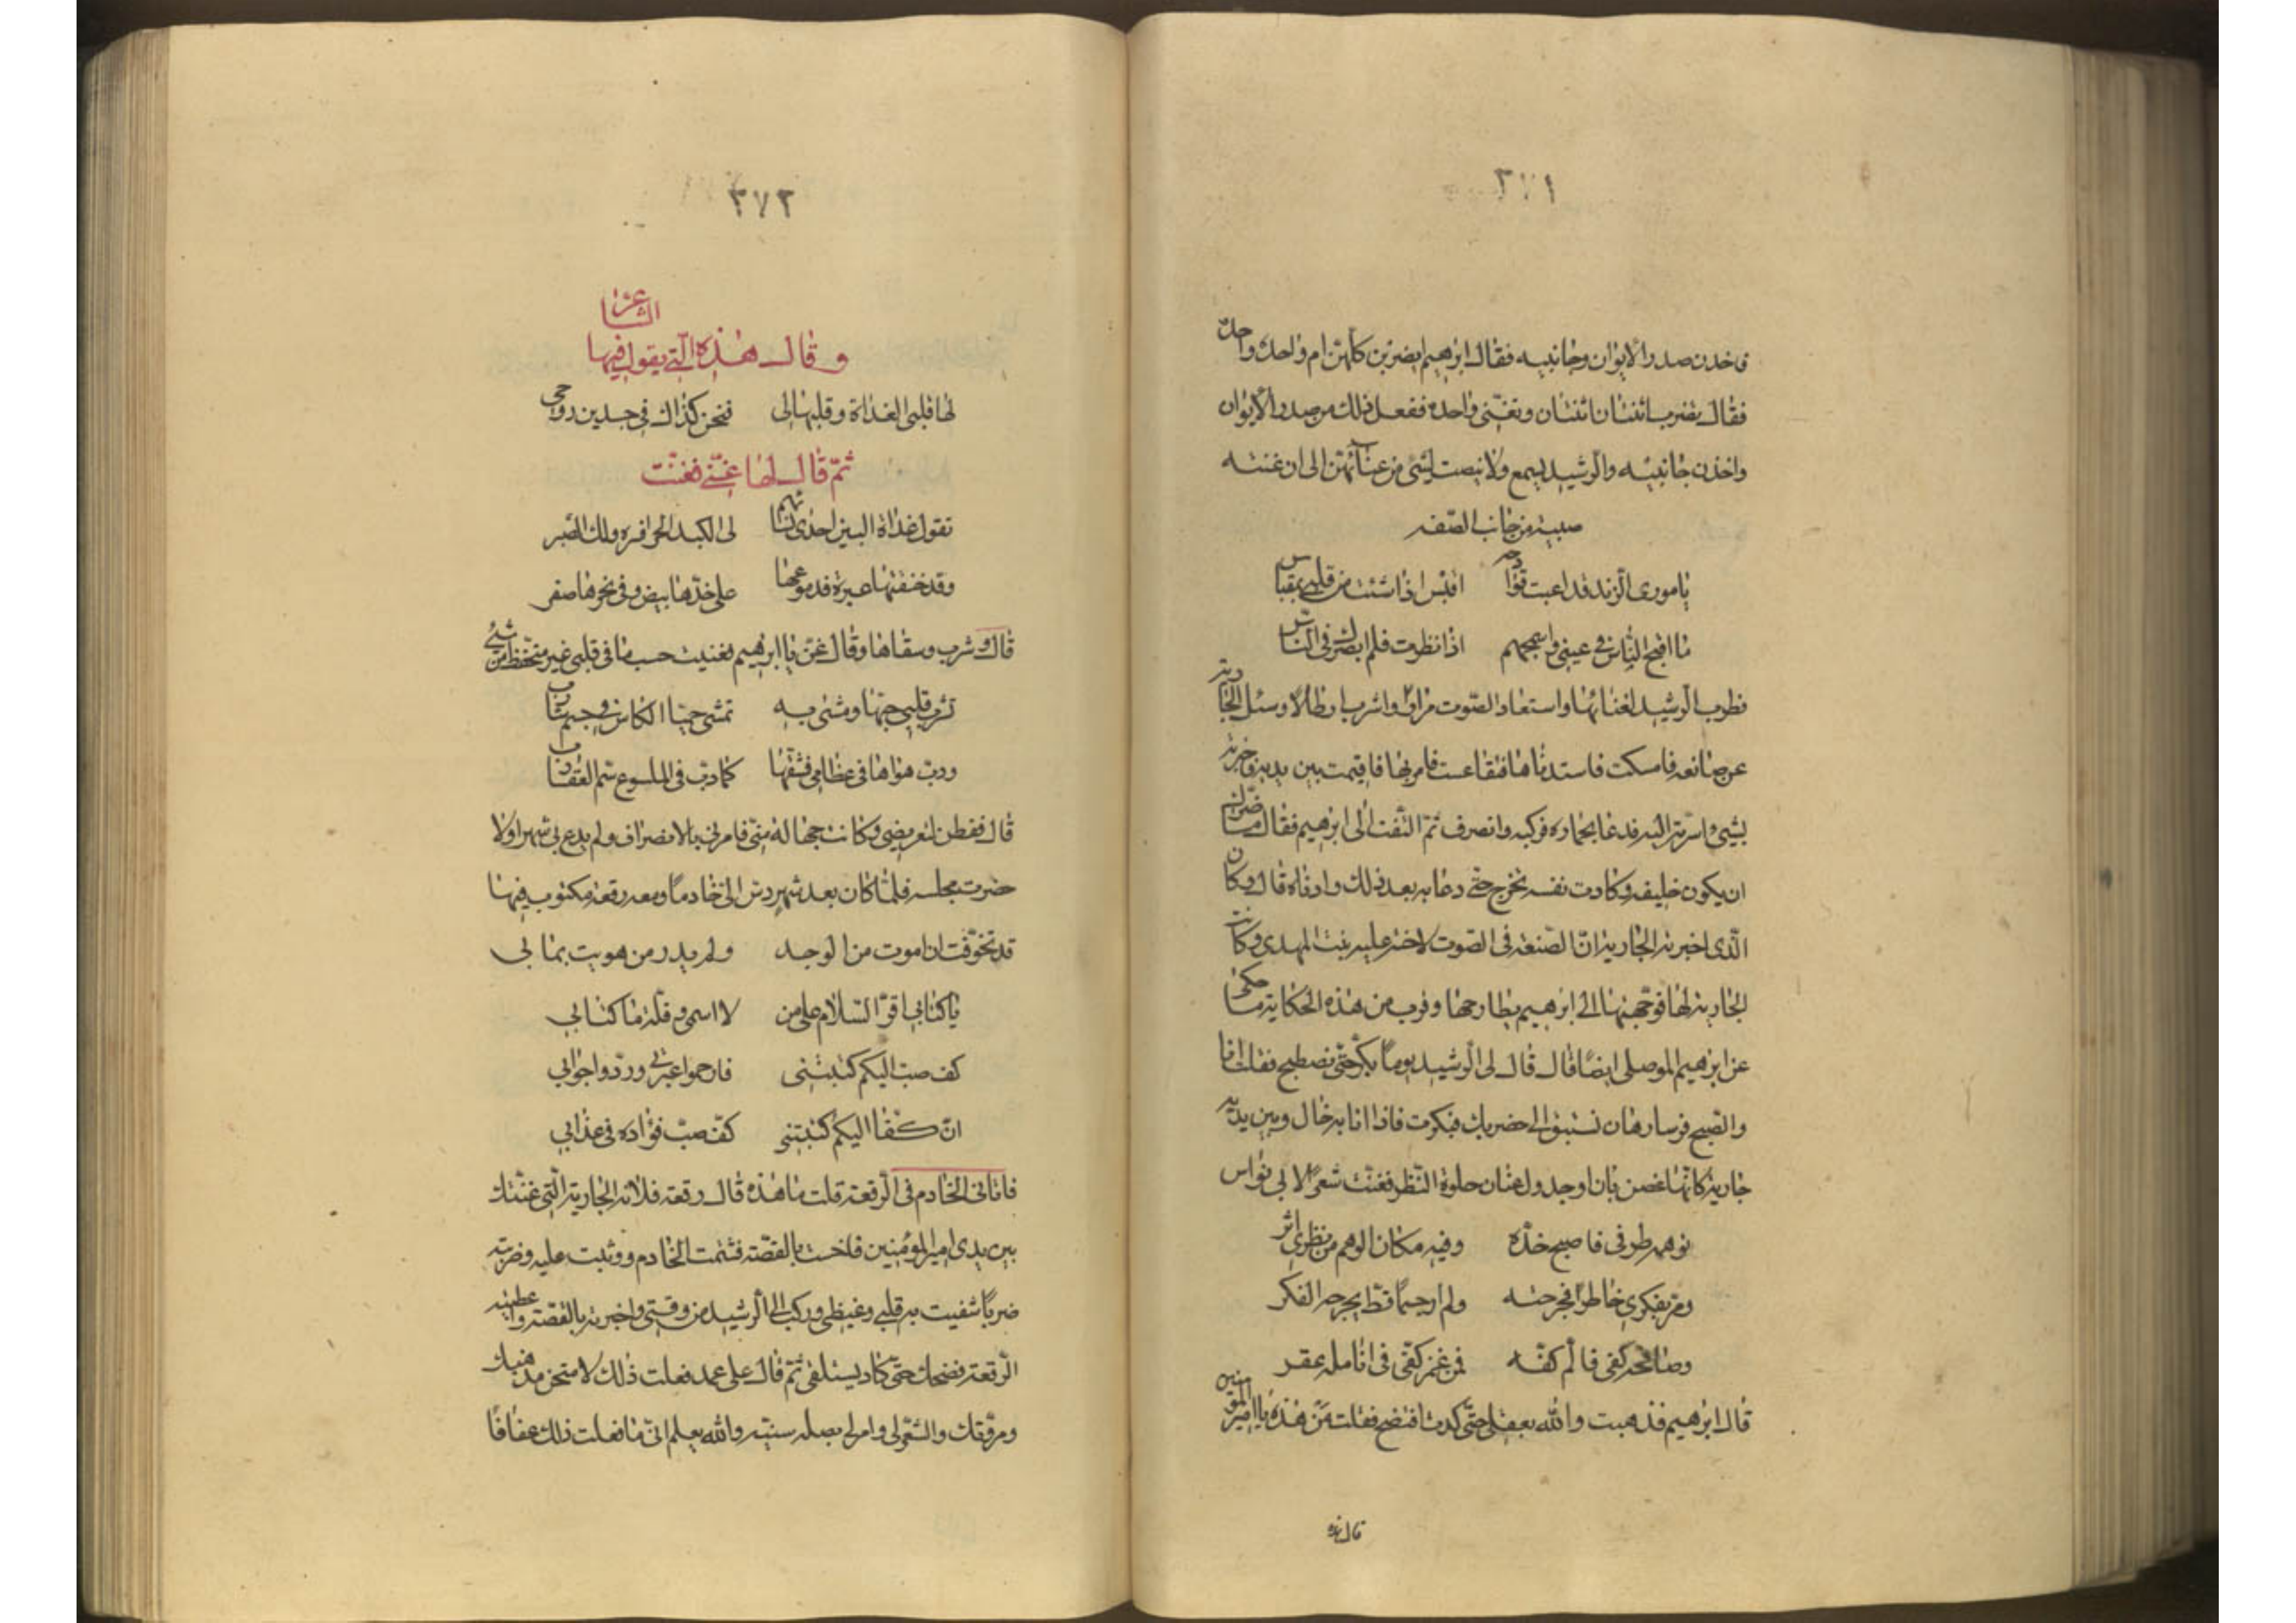 ٣٧١
فاخذن صدر الايوان وجانبيه فقال ابرهيم ايضربن كلهن ام واحدة واحدة
فقال يضرب اثنتان اثنتان وتغنى واحدة ففعل ذلك من صدر الايوان
واخذن جانبيه والرشيد يسمع ولا ينصت لشئ من غنائهن الى ان غنته
صبية من جانب الصفه
يا مورى الزند قد اعيت قوادحه اقبس اذا شئت من قلبى بمقباس
ما اقبح الناس فى عينى واسمجهم اذا نظرت فلم ابصرك فى الناس
فطرب الرشيد لغنائها واستعاد الصوت مرارا واشرب ارطالا وسئل الجارية
عن صانعه فامسكت فاستدناها فتقاعست فامر بها فاقيمت بين يديه فاخبرته
بشئ واسرته اليه فدعا بحماره فركبه وانصرف ثم التفت الى ابرهيم فقال ما ضرك ان لا
ان يكون خليفه وكادت نفسه تخرج حتى دعا به بعد ذلك وادناه قال وكان
الذى اخبرته الجارية ان الصنعه فى الصوت لاخته عليه بنت المهدى وكانت
الجارية لها فوجهتها الى ابرهيم يطارحها وقرب من هذه الحكاية ما حكى
عن ابرهيم الموصلى ايضا قال قال لى الرشيد يوما بكر حتى نصطبح فقلت انا
والصبح فرسا رهان نستبق الى حضرتك فبكرت فاذا انا به خال وبين يديه
جارية كانها غصن بان او جدول عنان حلوة النظر فغنت شعرا لابى نواس
توهمه طرفى فاصبح خده وفيه مكان الوهم من نظرى اثر
ومر بفكرى خاطرا فجرحته ولم ار جسما قط يجرحه الفكر
وصافحه كفى فالم كفه فمن غمز كفى فى انامله عقر
قال ابرهيم فذهبت والله بعقلى حتى كدت افتضح فقلت من هذه يا امير المؤمنين
قال هذه
٣٧٢
وقال هذه التى يقول فيها الشاعر
لها قلبى الغداة وقلبها لى فنحن كذاك فى جسدين روحى
ثم قال لها غنى فغنت
تقول غداة البين احدى نسائهم لى الكبد الحرا فسر ولك الصبر
وقد خنقتها عبرة فدموعها على خدها بيض وفى نحرها صفر
قال وشرب وسقاها وقال غن يا ابرهيم فغنيت حسب ما فى قلبى غير متحفظ من شئ
تشرب قلبى حبها ومشى به تمشى حميا الكاس فى جسم شارب
ودب هواها فى عظامى فشفها كما دب فى الملسوع سم العقارب
قال ففطن لتعريضى وكانت جهالة منى فامرنى بالانصراف ولم يدع بى شهرا ولا
حضرت مجلسه فلما كان بعد شهر دس الى خادما ومعه رقعة مكتوب فيها
قد تخوفت ان اموت من الوجد ولم يدر من هويت بما بى
يا كتابى اقر السلام على من لا اسمى وقل له ما كتابى
كف صب اليكم كتبتنى فارحموا غربتى وردوا جوابى
ان كفا اليكم كتبتنى كف صب فؤاده فى عذابى
فاتانى الخادم فى الرقعة قلت ما هذه قال رقعة فلانه الجارية التى غنتك
بين يدى امير المومنين فاحست بالقصة فشتمت الخادم ووثبت عليه وضربته
ضربا شفيت به قلبى وغيظى وركبت الى الرشيد من وقتى واخبرته بالقصة واعطيته
الرقعة فضحك حتى كاد يستلقى ثم قال على عمد فعلت ذلك لامتحن مذهبك
وطريقتك والشعر لى وامر لى بصله سنيه والله يعلم انى ما فعلت ذلك عفافا